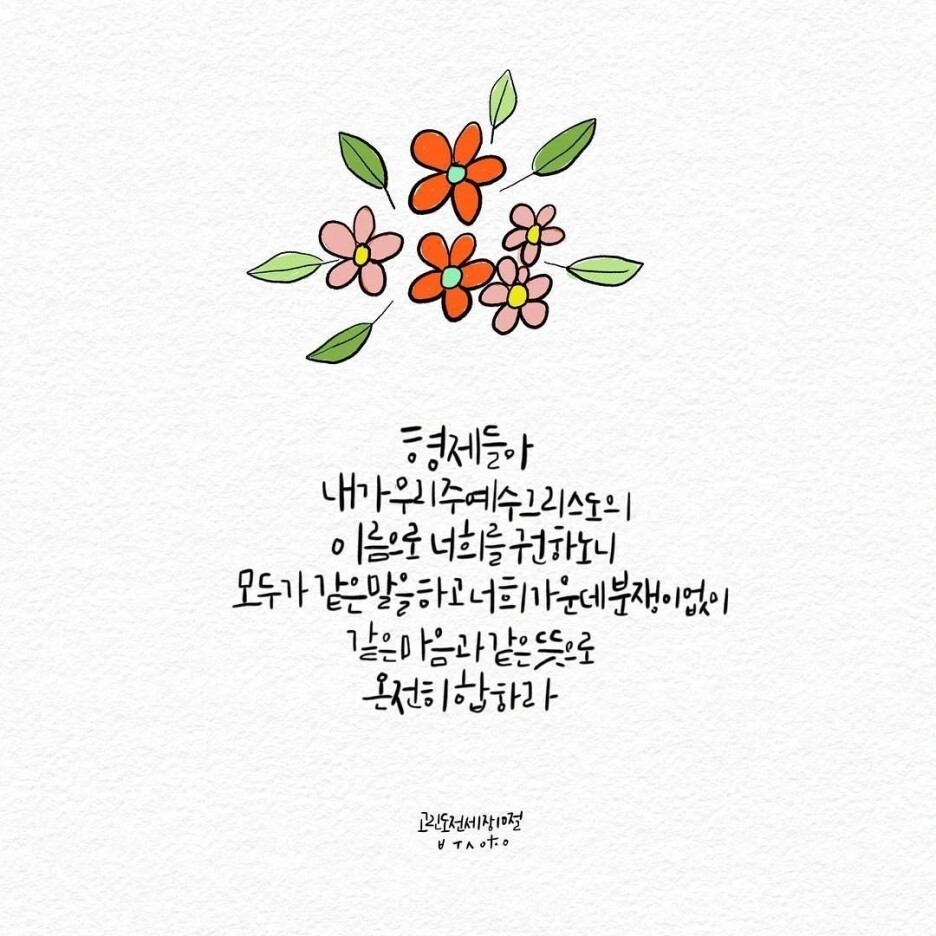 형제들아
내가 우리 주 예수 그리스도의
이름으로 너희를 권하노니
모두가 같은 말을 하고 너희 가운데 분쟁이 없이
같은 마음과 같은 뜻으로
온전히 합하라
고린도전서1장10절